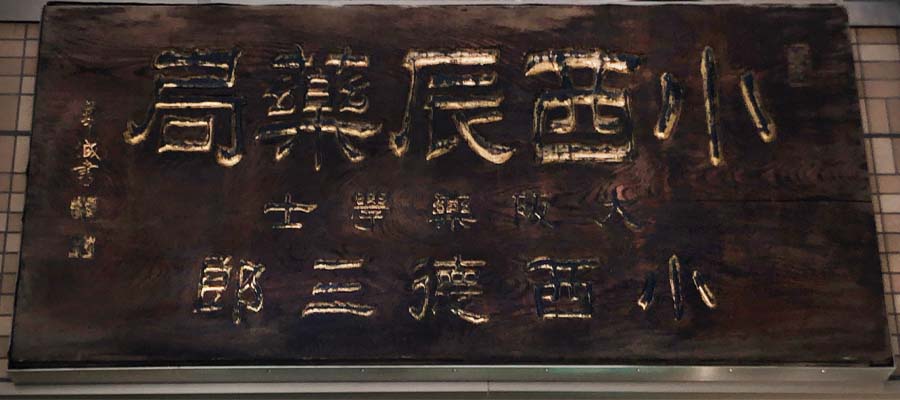 小西辰藥局
大阪藥學士
小西德三郎